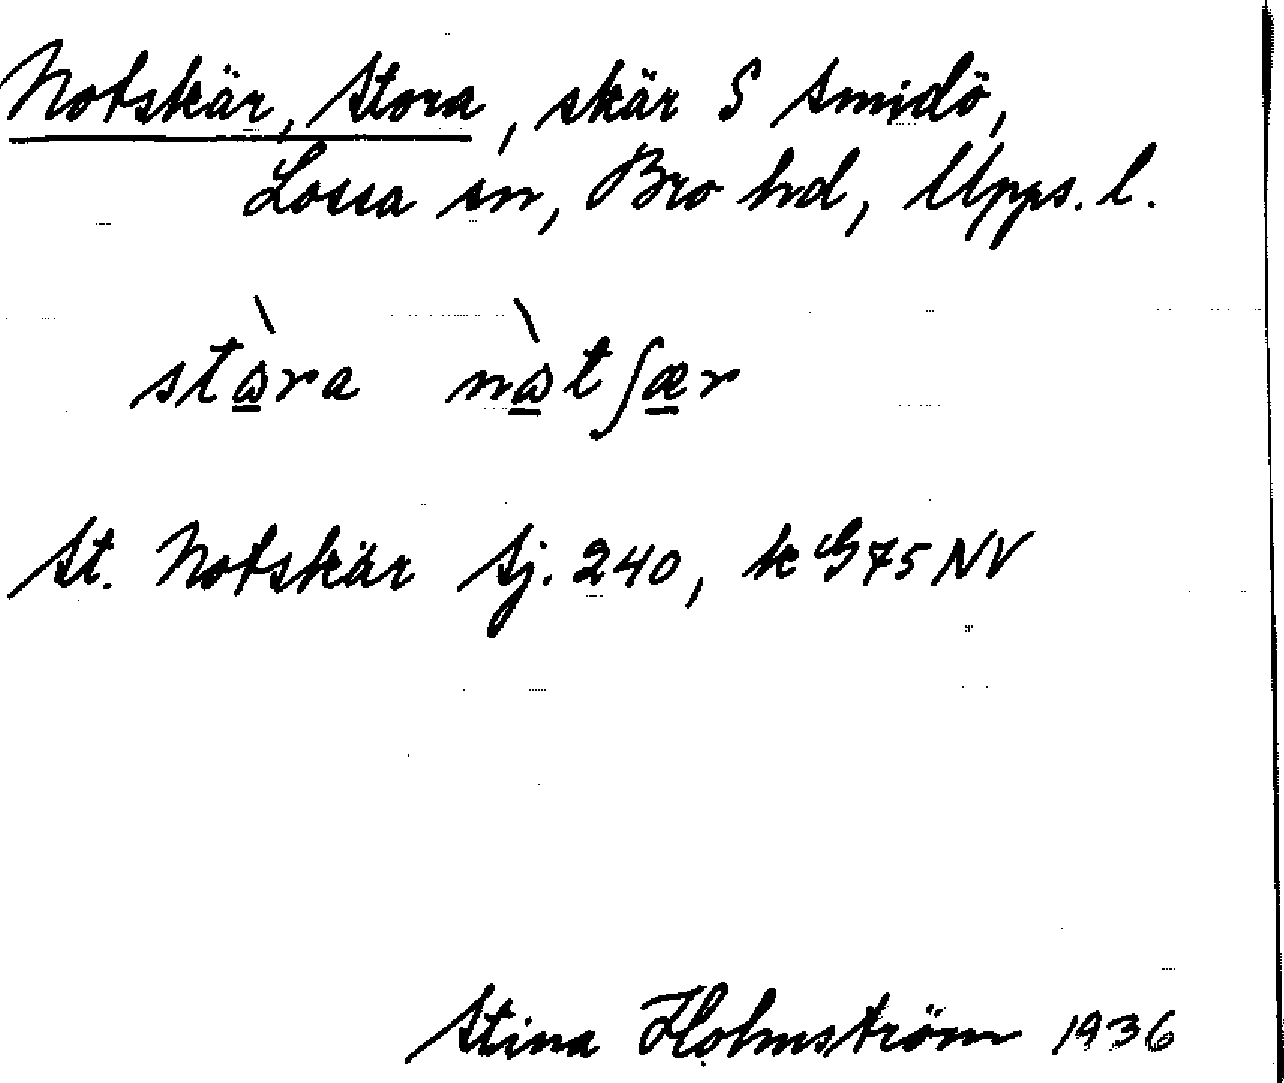 Notskär, Stora, skär S Smidö,
Lossa sn, Bro hd, Upps. l.
stɷ̀ra nɷ̀tʃær
St. Notskär Sj. 240, k G75 NV
Stina Holmström 1936